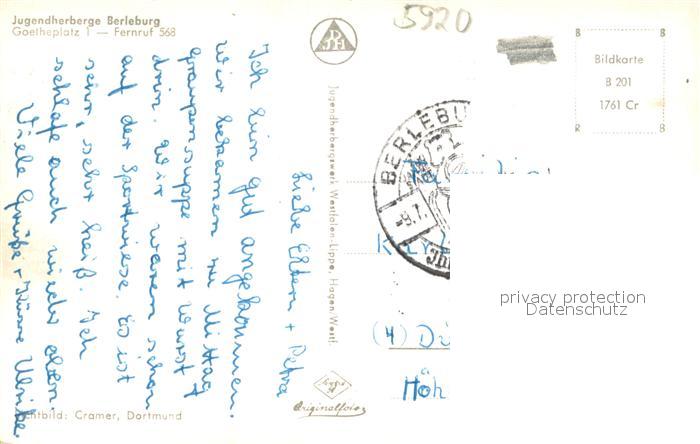 Jugendherberge Berleburg
Goetheplatz 1 — Fernruf 568
5920
Bildkarte
B 201
1761 Cr
Liebe Eltern + Petra
Ich bin gut angekommen.
Wir bekamen zu Mittag
graupensuppe mit Wurst
drin. Wir waren schon
auf der Sportwiese. Es ist
sehr, sehr heiß. Ich
schlafe auch wieder oben.
Viele Grüße + Küsse Ulrike
Jugendherbergswerk Westfalen-Lippe, Hagen/Westf.
BERLEBU
-9.7.
(4) Dü
Höh
privacy protection
Datenschutz
Originalfoto
chtbild: Cramer, Dortmund